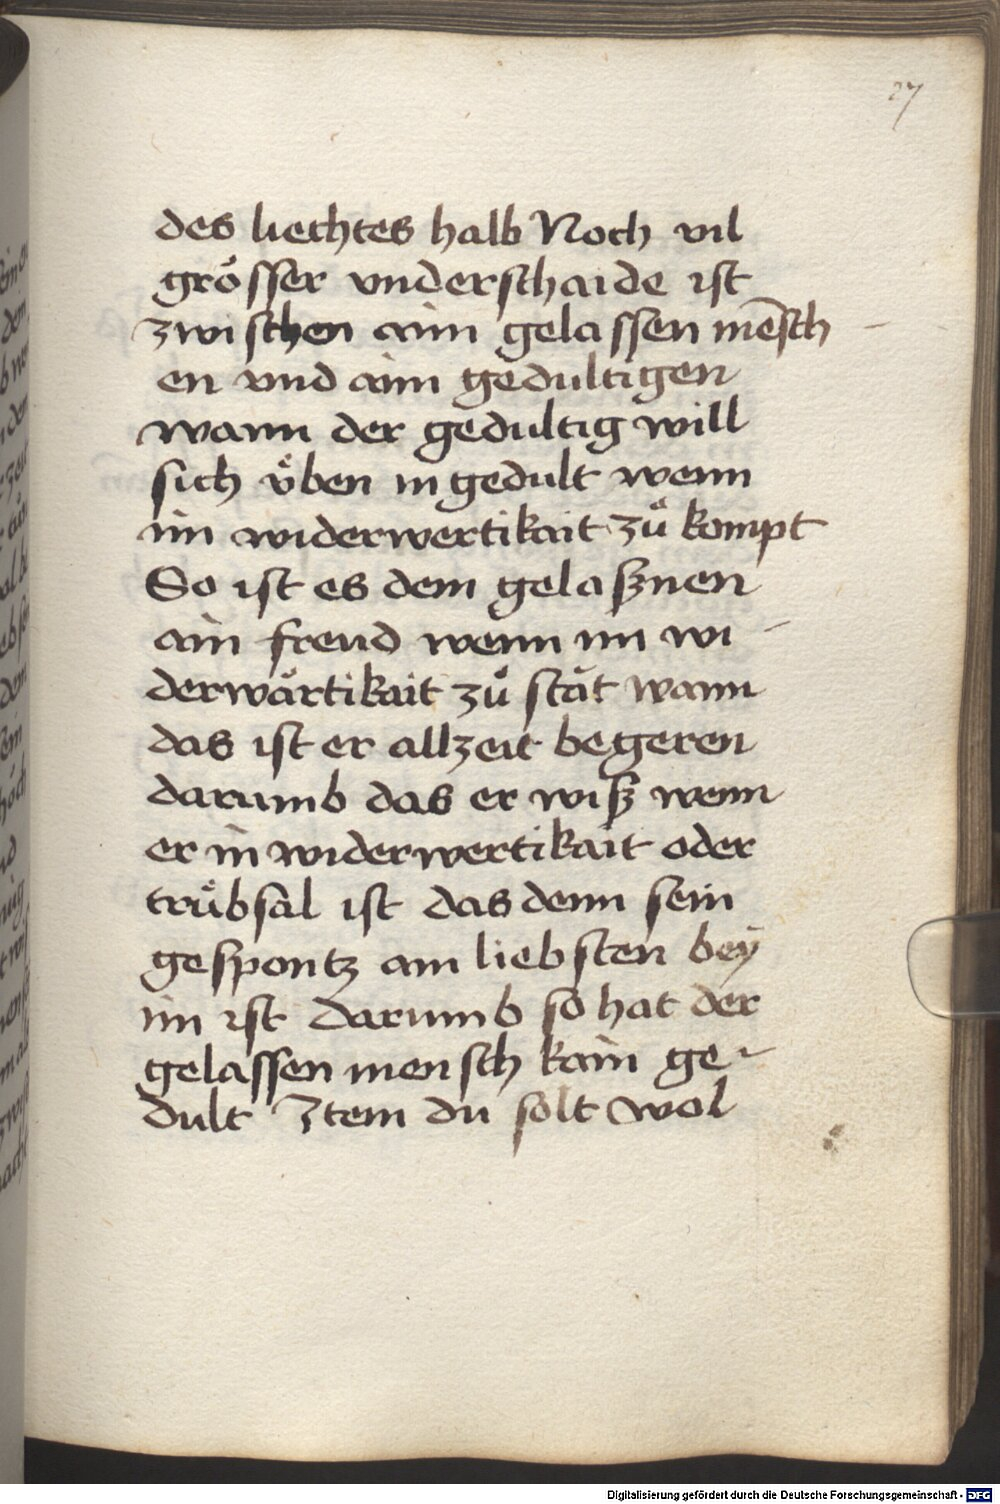 27
des liechtes halb Noch vil
grösser vnderschaide ist
zwischen aim gelassen mēsch
en vnd aim gedultigen
wann der gedultig will
sich v̈ben in gedult wenn
im widerwertikait zů kompt
So ist es dem gelasznen
ain freud wenn im wi-
derwärtikait zů stät wann
das ist er allzeit begeren
darumb das er wisz wenn
er in widerwertikait oder
trübsal ist das denn sein
gespontz am liebsten bey
im ist darumb so hat der
gelassen mensch kain ge-
dult Item du solt wol
Digitalisierung gefördert durch die Deutsche Forschungsgemeinschaft - DFG